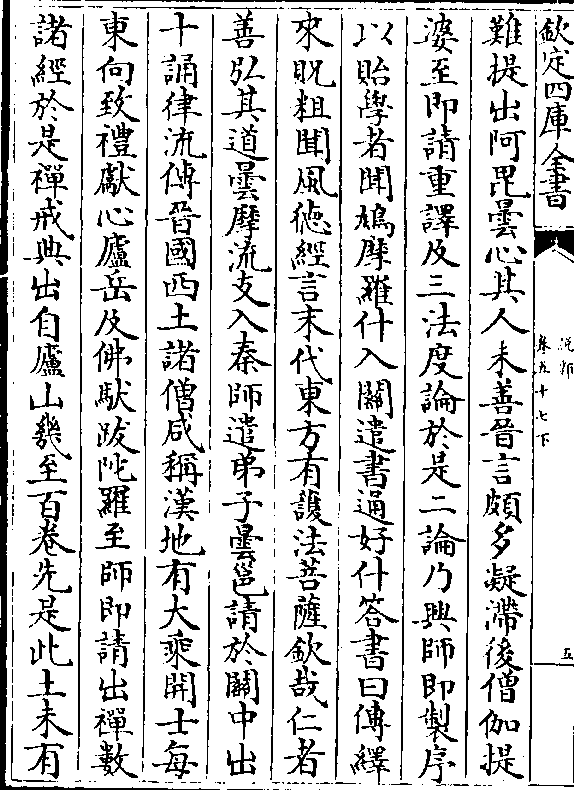 欽定四庫全書
說郛
卷五十七下
五
難提出阿毘曇心其人未善晉言頗多凝滯後僧伽提
婆至即請重譯及三法度論於是二論乃興師即製序
以貽學者聞鳩摩羅什入關遣書通好什答書曰傳繹
來貺粗聞風徳經言末代東方有護法菩薩欽哉仁者
善弘其道曇摩流支入秦師遣弟子曇邕請於關中出
十誦律流傳晉國西土諸僧咸稱漢地有大乘開士每
東向致禮獻心廬岳及佛馱跋陀羅至師即請出禪數
諸經於是禪戒典出自廬山幾至百卷先是此土未有